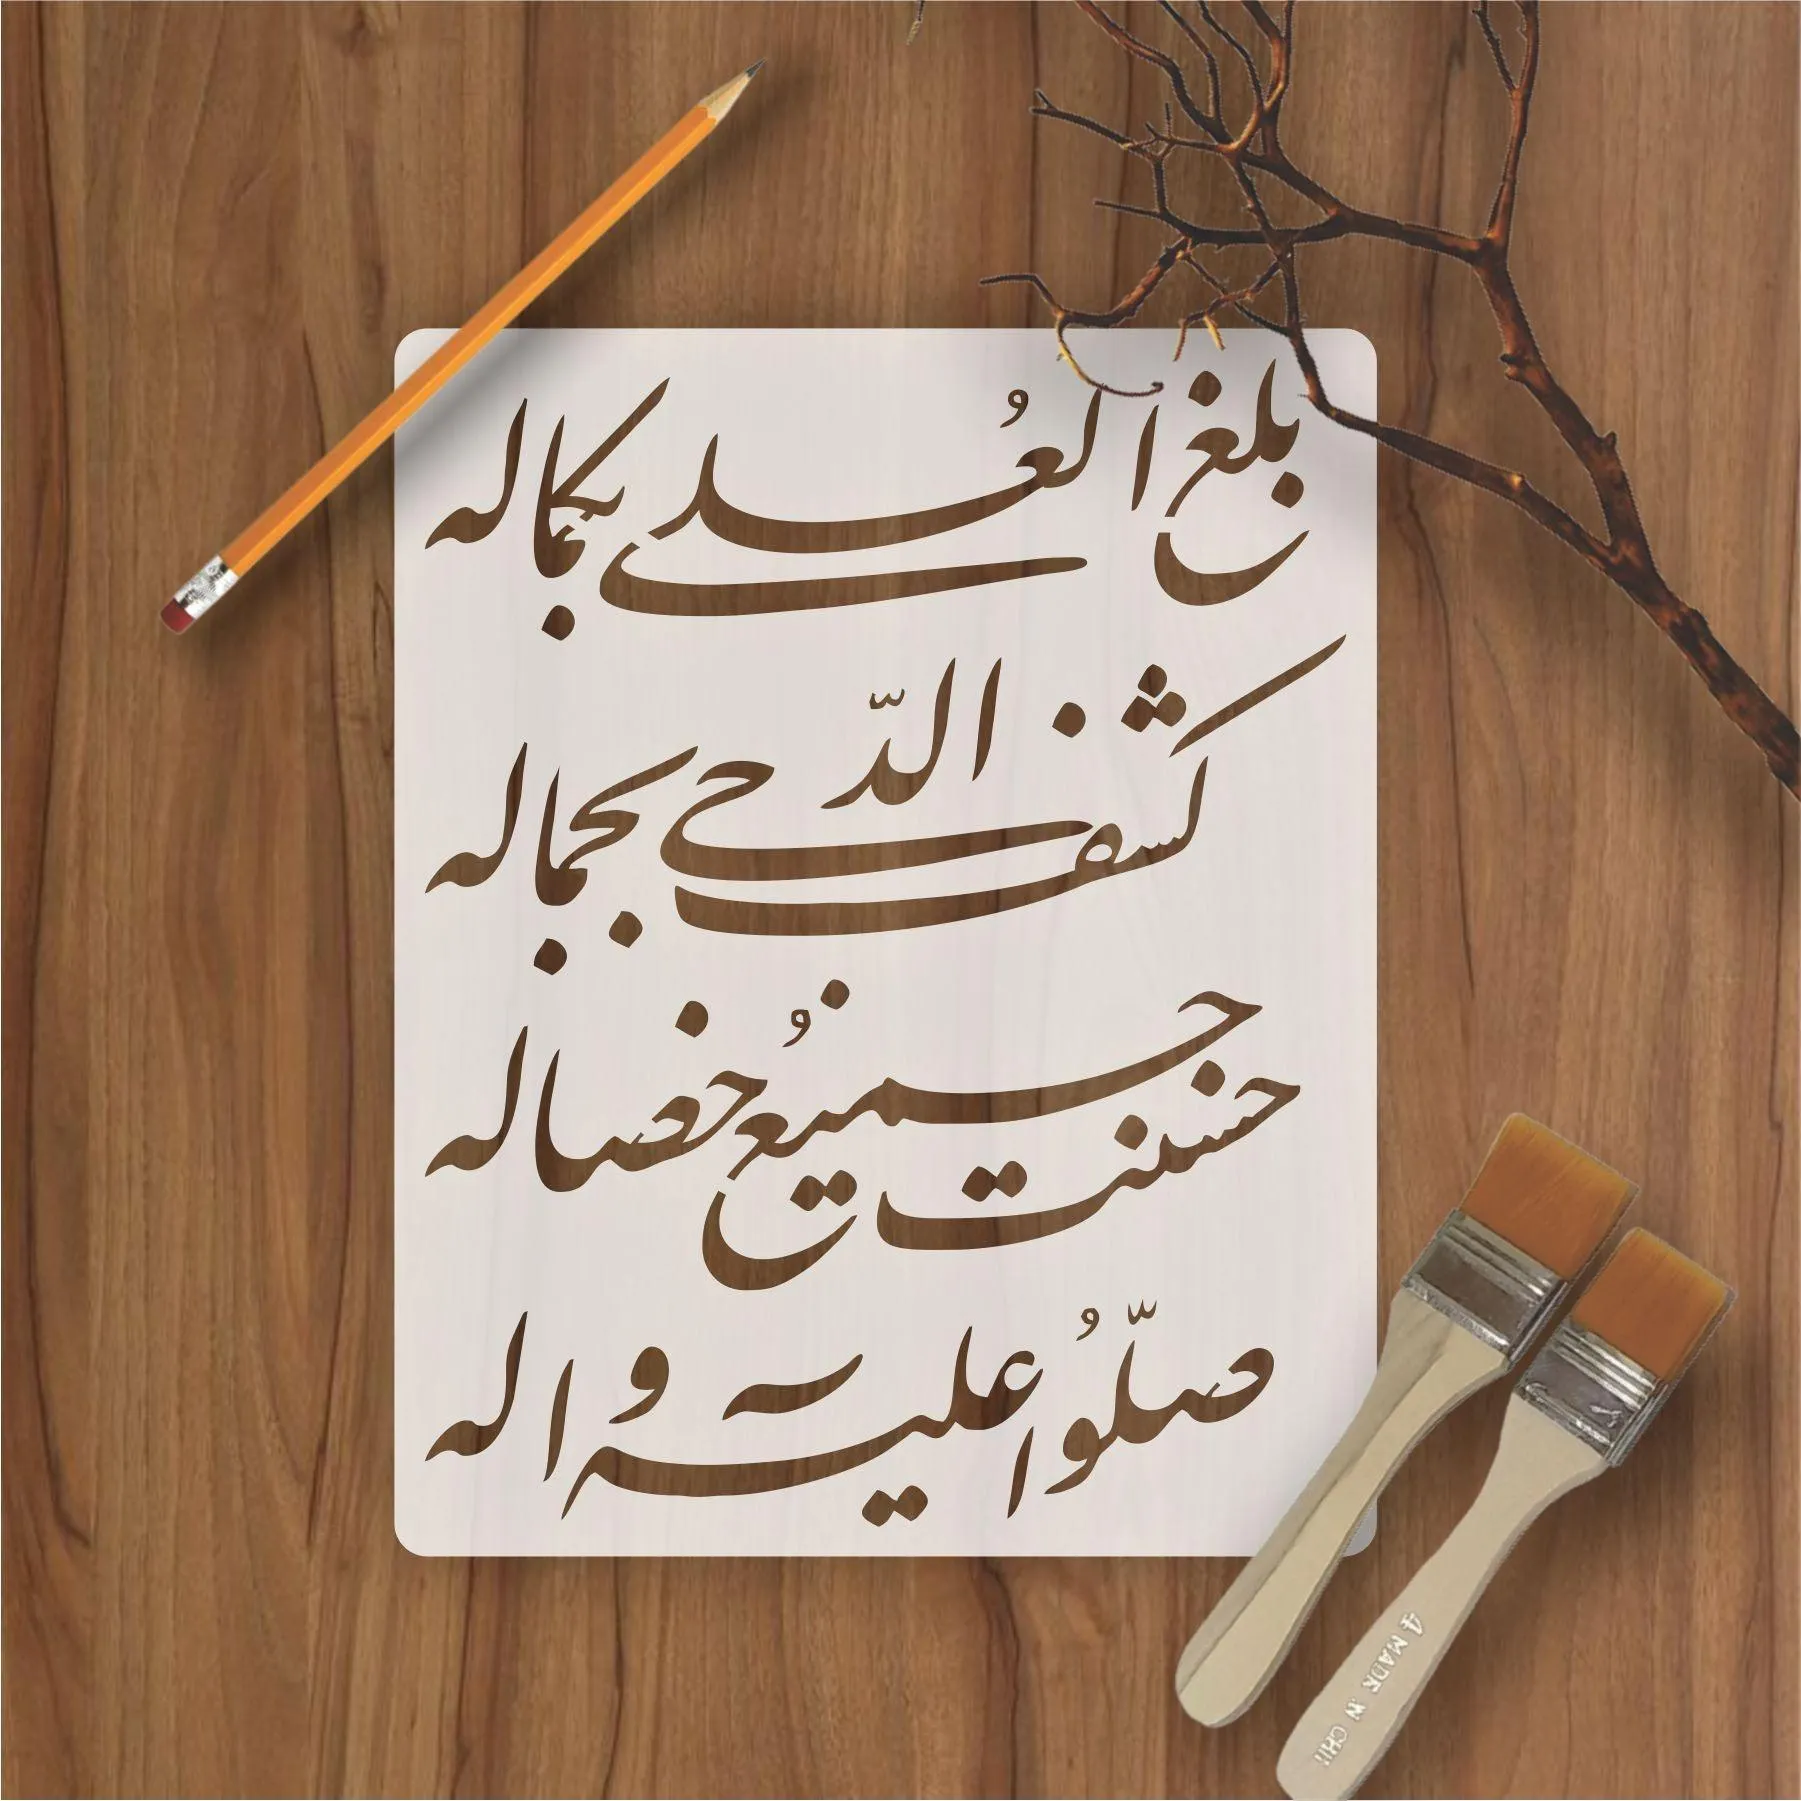 بلغ العُلى بكماله
كشف الدّجى بجماله
حسنت جميعُ خصاله
صلّوُا عليه واله
4 MADE IN